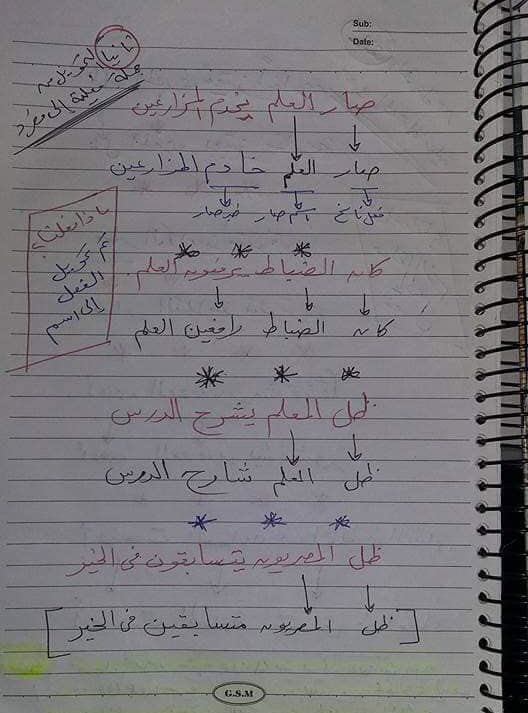 Sub:
Date:
ثانيا
التحويل من
جملة فعلية إلى مفرد
صار العلم يخدم المزارعين
صار العلم خادم المزارعين
فعل ناسخ اسم صار خبر صار
ماذا فعلت؟
تم تحويل
الفعل
إلى اسم
كان الضباط يرفعون العلم
كان الضباط رافعين العلم
ظل المعلم يشرح الدرس
ظل المعلم شارح الدرس
ظل المصريون يتسابقون فى الخير
[ظل المصريون متسابقين فى الخير]
G.S.M